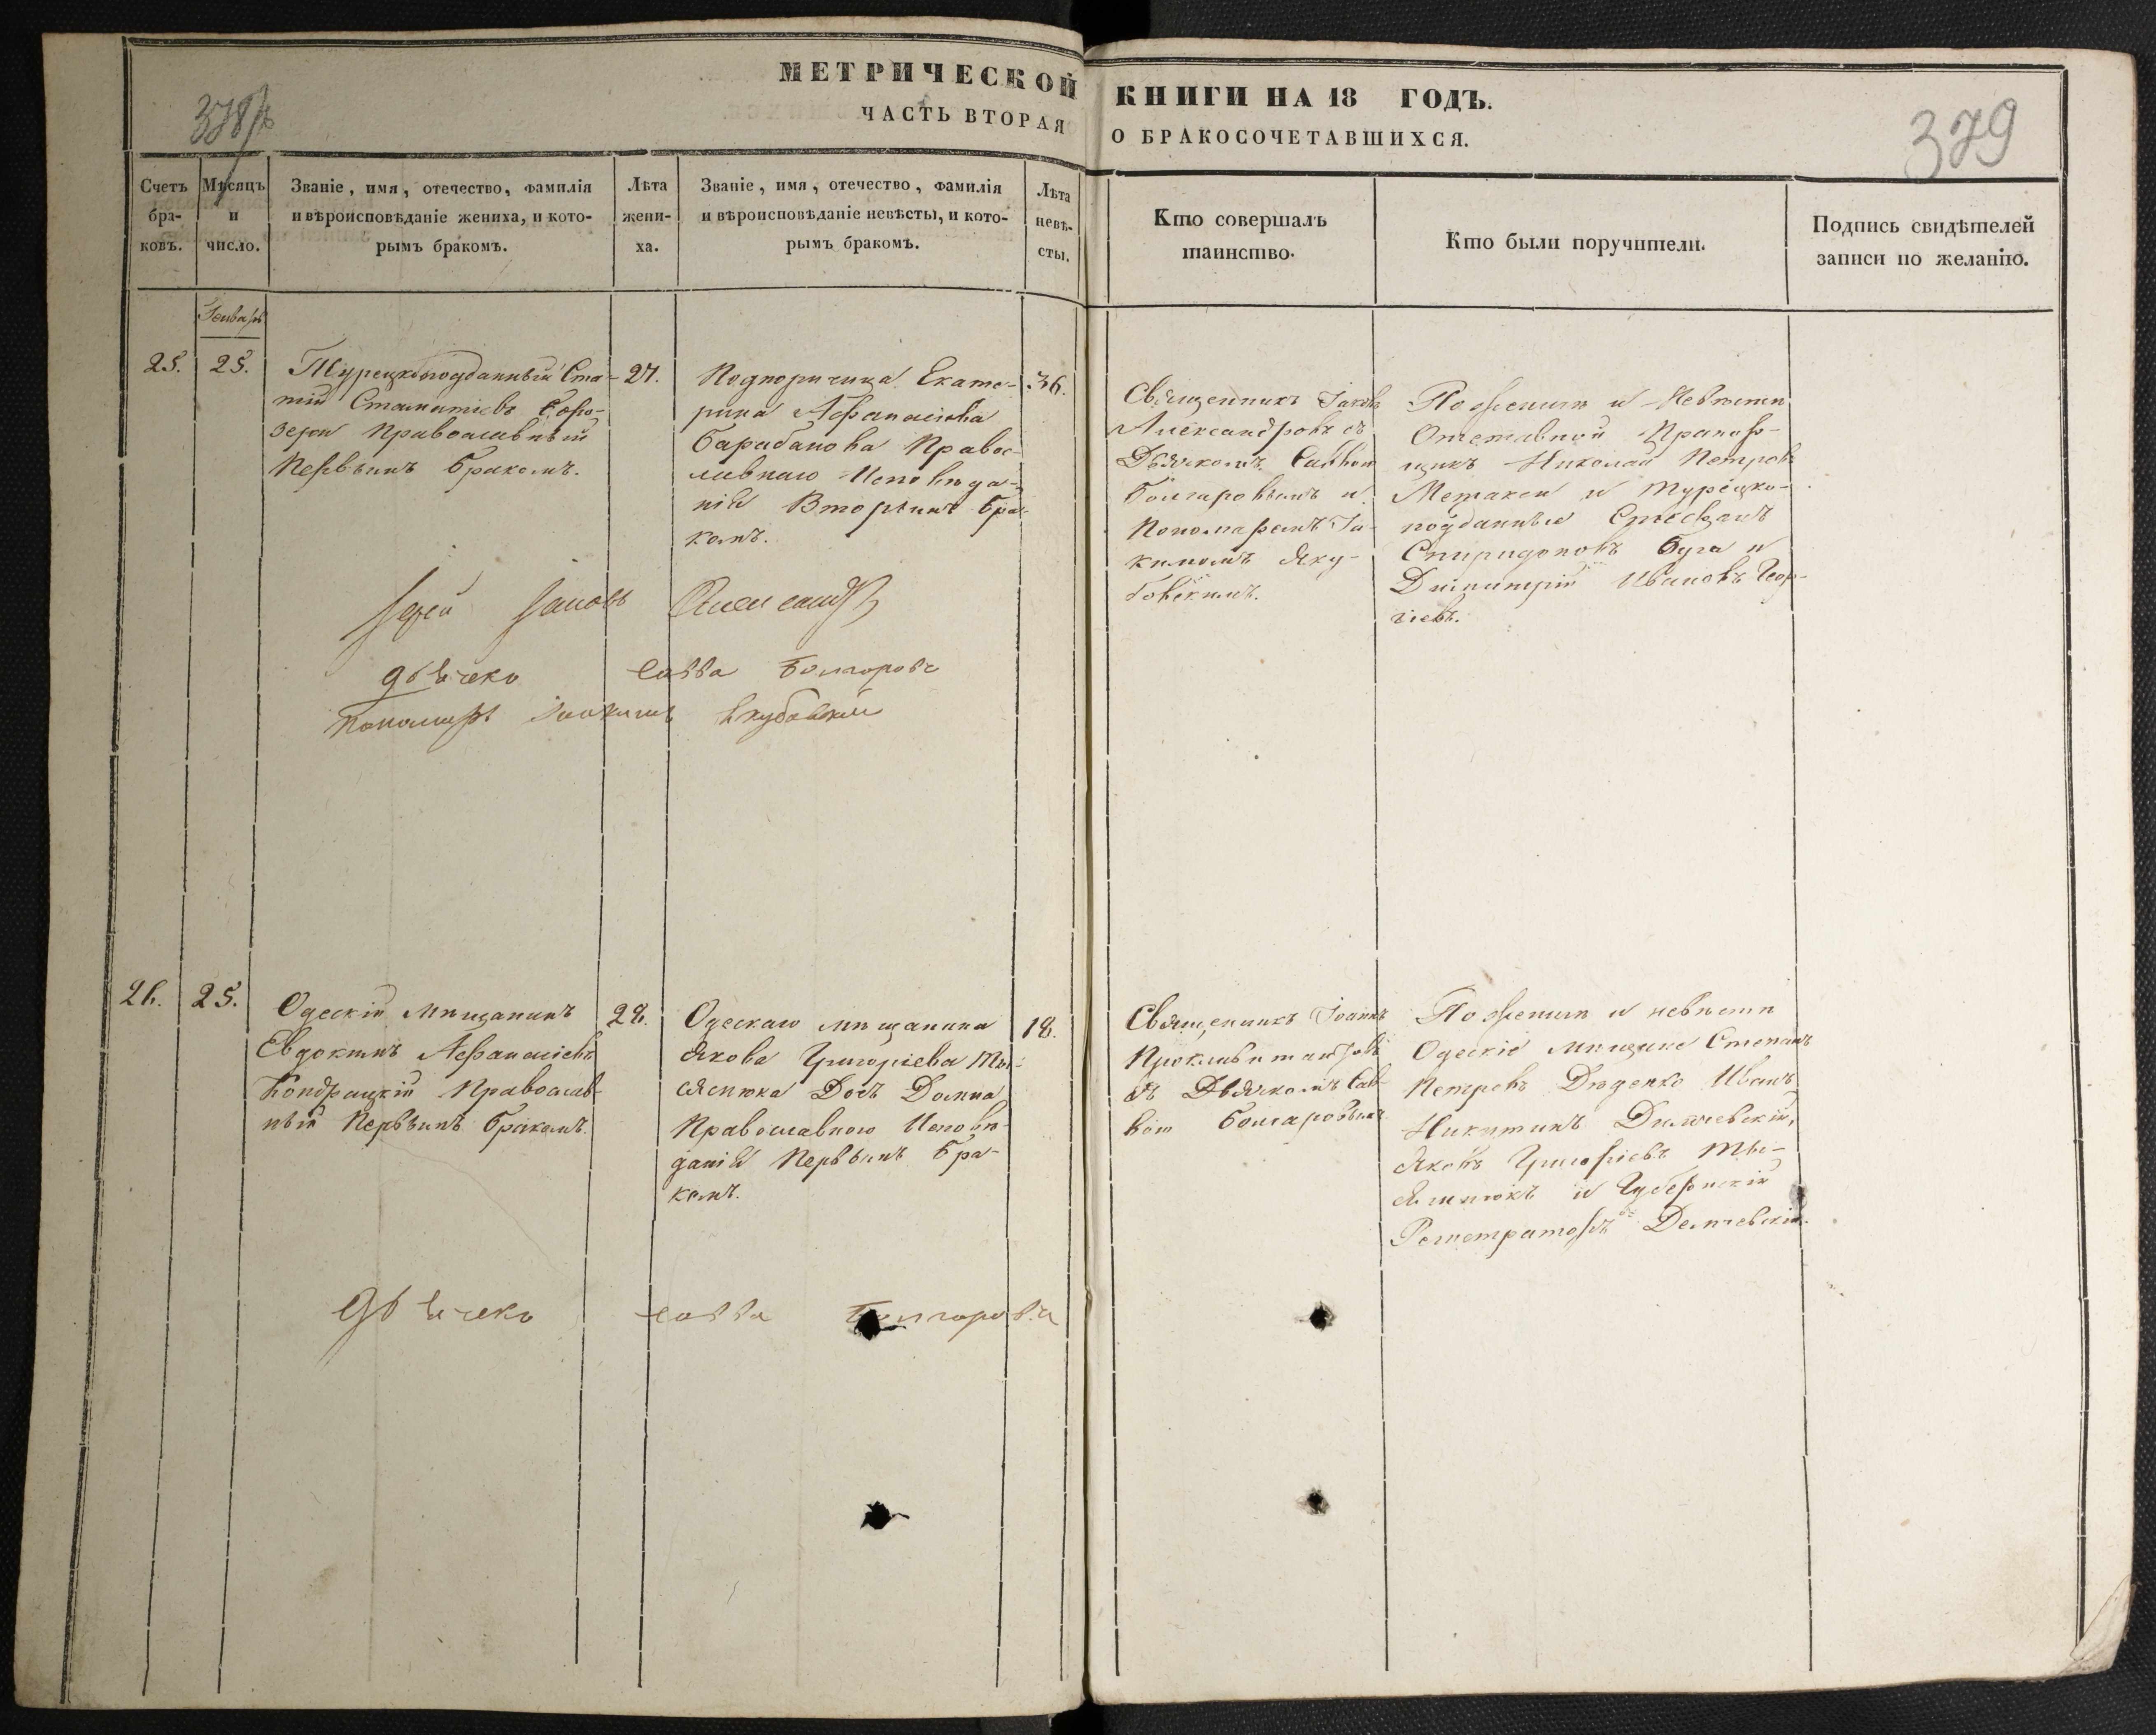 МЕТРИЧЕСКОЙ КНИГИ НА 18 ГОДЪ.
ЧАСТЬ ВТОРАЯ О БРАКОСОЧЕТАВШИХСЯ.
379
Счетъ
бра-
ковъ.
Мѣсяцъ
и
число.
Званіе, имя, отечество, фамилія
и вѣроисповѣданіе жениха, и кото-
рымъ бракомъ.
Лѣта
жени-
ха.
Званіе, имя, отечество, фамилія
и вѣроисповѣданіе невѣсты, и кото-
рымъ бракомъ.
Лѣта
невѣ-
сты.
Кто совершалъ
таинство.
Кто были поручители.
Подпись свидѣтелей
записи по желанію.
Генварь
25.
25.
Турецкоподданный Ста-
тій Стаматіевъ
Православный
Первымъ бракомъ.
27.
Подпоручица Екате-
рина Афанасіева
Барабанова Правос-
лавнаго Исповѣда-
нія Вторымъ бра-
комъ.
36.
Священникъ Іаковъ
Александровъ съ
Дьячкомъ Саввою
Болгаровымъ и
Пономаремъ Іа-
кимомъ Яку-
бовскимъ.
По женихѣ и невѣстѣ
Отставной Прапор-
щикъ Николай Петровъ
Метакса и Турецко-
подданные Стефанъ
Спиридоновъ Буга и
Димитрій Ивановъ Геор-
гіевъ.
Іерей Іаковъ Александровъ
дьячекъ савва Болгоровъ
пономарь Іоакимъ Якубовскій
26.
25.
Одескій Мѣщанинъ
Евдокимъ Афанасіевъ
Кондрацкій Православ-
ный Первымъ бракомъ.
28.
Одескаго мѣщанина
Якова Григоріева
Дочь Домна
Православнаго Исповѣ-
данія Первымъ Бра-
комъ.
18.
Священникъ Іоаннъ
съ Дьячкомъ Сав-
вою Болгаровымъ
По женихѣ и невѣстѣ
Одескіе Мѣщане Степанъ
Петровъ Діденко Иванъ
Никитинъ
Яковъ Григоріевъ
и Губернскій
Регистраторъ
дьячекъ савва Болгоровъ